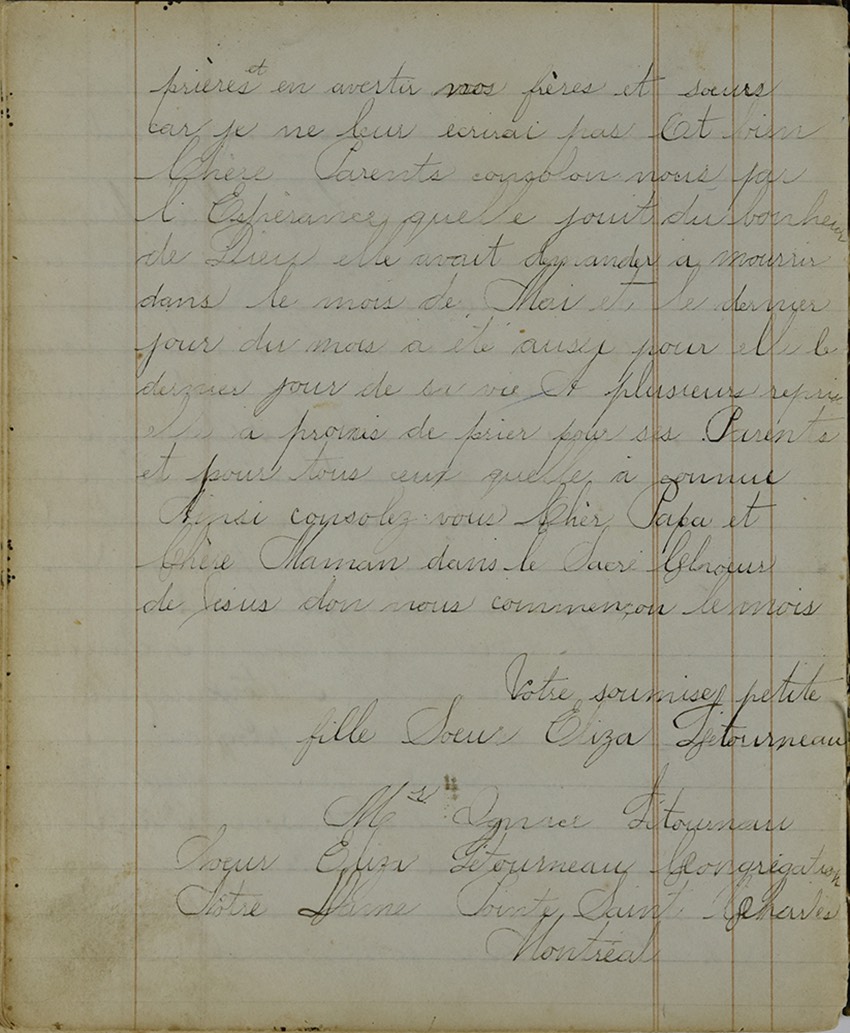 prières et en avertir nos frères et soeurs
car je ne leur ecrirai pas Et bien
Chère Parents consolon nous par
l'Espérance quelle jouit du bonheur
de Dieu elle avait demander a mourrir
dans le mois de Mai et le dernier
jour du mois a été aussi pour elle le
dernier jour de sa vie A plusieurs repris
elle a promis de prier pour ses Parents
et pour tous ceux quelle à connue
Ainsi consolez-vous Chèr Papa et
Chère Maman dans le Sacré Choeur
de Jésus don nous commençon le mois
Votre soumise petite
fille Soeur Eliza Létourneau
Mr Ignace Létournau
Soeur Eliza Létourneau Congrégation
Nôtre Dame Pointe Saint Charles
Montréal